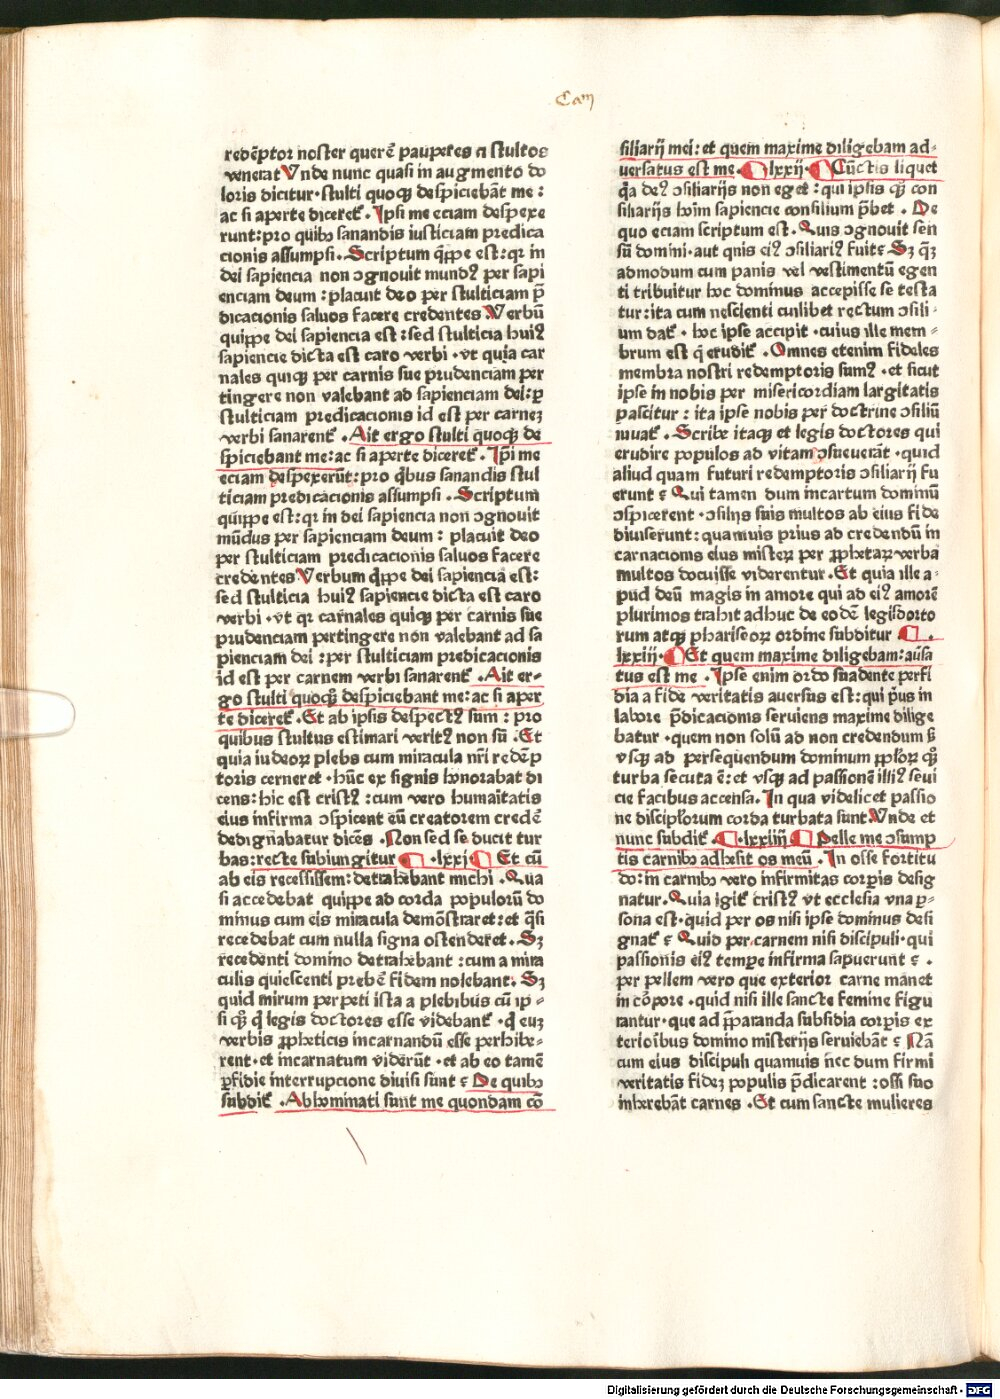 Cam
redēptor noster querē pauperes ⁊ stultos
venerat Vnde nunc quasi in augmento do
loris dicitur·stulti quoqꝫ despiciebāt me:
ac si aperte diceret᷒. Ipsi me eciam despexe
runt:pro quibꝰ sanandis iusticiam predica
cionis assumpsi. Scriptum qꝓpe est:qꝛ in
dei sapiencia non ꝯgnouit mundꝰ per sapi
enciam deum: placuit deo per stulticiam p̄
dicacionis saluos facere credentes Verbū
quippe dei sapiencia est:sed stulticia huiꝰ
sapiencie dicta est caro verbi·vt quia car
nales quiqꝫ per carnis sue prudenciam per
tingere non valebant ad sapienciam dei:ꝑ
stulticiam predicacionis id est per carneꝫ
verbi sanarent᷒. Ait ergo stulti quoqꝫ de
spiciebant me:ac si aperte diceret᷒. Ipi me
eciam despexerūt:pro qͥbus sanandis stul
ticiam predicacionis assumpsi. Scriptum
quippe est:qꝛ in dei sapiencia non ꝯgnouit
mūdus per sapienciam deum: placuit deo
per stulticiam predicacionis saluos facere
credentes Verbum qͥppe dei sapiencia est:
sed stulticia huiꝰ sapiencie dicta est caro
verbi·vt qꝛ carnales quiqꝫ per carnis sue
prudenciam pertingere non valebant ad sa
pienciam dei:per stulticiam predicacionis
id est per carnem verbi sanarent᷒. Ait er-
go stulti quoqꝫ despiciebant me:ac si aper
te diceret᷒. Et ab ipsis despectꝰ sum: pro
quibus stultus estimari veritꝰ non sū. Et
quia iudeoꝝ plebs cum miracula nr̄i redēp
toris cerneret·hūc ex signis honorabat di
cens:hic est cristꝰ:cum vero humaitatis
eius infirma ꝯspicent eū creatorem credē
dedignabatur dicēs. Non sed se ducit tur
bas:recte subiungitur ·lxxi· Et cū
ab eis recessissem:detrahebant michi. Qua
si accedebat quippe ad corda populorū do
minus cum eis miracula demōstraret:et qͣsi
recedebat cum nulla signa ostenderet. Sꝫ
recedenti domino detrahebant:cum a mira
culis quiescenti prebē fidem nolebant. Sꝫ
quid mirum perpeti ista a plebibus cū ip-
si qꝫ qͥ legis doctores esse videbant᷒·qͥ euꝫ
verbis ꝓpheticis incarnandū esse perhibe-
rent·et incarnatum viderūt·et ab eo tamē
ꝑfidie interrupcione diuisi sunt ? De quibꝰ
subdit᷒. Abhominati sunt me quondam cō
siliarij mei:et quem maxime diligebam ad-
uersatus est me. lxxij· Cūctis liquet
qͣ deꝰ ꝯsiliarijs non eget:qui ipsis qꝫ con
siliarijs hoim sapiencie consilium p̄bet. De
quo eciam scriptum est. Quis ꝯgnouit sen
sū domini·aut qnis eiꝰ ꝯsiliariꝰ fuit? Sꝫ qꝫ
admodum cum panis vel vestimentū egen
ti tribuitur hoc dominus accepisse se testa
tur:ita cum nescienti cuilibet rectum ꝯsili-
um dat᷒·hoc ipse accipit·cuius ille mem-
brum est qͥ erudit᷒. Omnes etenim fideles
membra nostri redemptoris sumꝰ·et sicut
ipse in nobis per misericordiam largitatis
pascitur: ita ipse nobis per doctrine ꝯsiliū
iuuat᷒. Scribe itaqꝫ et legis doctores qui
erudire populos ad vitam ꝯsueuerāt·quid
aliud quam futuri redemptoris ꝯsiliarij fu
erunt ? Qui tamen dum incartum dominū
ꝯspicerent·ꝯsilijs suis multos ab eius fide
diuiserunt:quamuis prius ad credendū in
carnacionis eius misteꝝ per ꝓphetaꝝ verba
multos docuisse viderentur. Et quia ille a-
pud deū magis in amore qui ad eiꝰ amorē
plurimos trahit adhuc de eodē legisdocto
rum atqꝫ phariseoꝝ ordine subditur .
lxxiij· Et quem maxime diligebam:auersa
tus est me. Ipse enim ordo suadente perfi
dia a fide veritatis auersus est:qui p̄us in
labore p̄dicacionis seruiens maxime dilige
batur·quem non solū ad non credendum s̄
vsqꝫ ad persequendum dominum pploꝝ qꝫ
turba secuta ē:et vsqꝫ ad passionē illiꝰ seui
cie facibus accensa. In qua videlicet passio
ne discipulorum corda turbata sunt Vnde et
nunc subdit᷒. ·lxxiiij· Pelle me ꝯsump
tis carnibꝰ adhesit os meū. In osse fortitu
do:in carnibꝰ vero infirmitas corꝑis desig
natur. Quia igit᷒ cristꝰ vt ecclesia vna ꝑ-
sona est·quid per os nisi ipse dominus desi
gnat᷒ ? Quid per carnem nisi discipuli·qui
passionis eiꝰ tempe infirma sapuerunt ? .
per pellem vero que exterior carne manet
in cōpore·quid nisi ille sancte femine figu
rantur·que ad p̄paranda subsidia corꝑis ex
terioībus domino misterijs seruiebāt ? Nā
cum eius discipuli quamuis nec dum firmi
veritatis fideꝫ populis p̄dicarent:ossi suo
inherebāt carnes. Et cum sancte mulieres
Digitalisierung gefördert durch die Deutsche Forschungsgemeinschaft - DFG